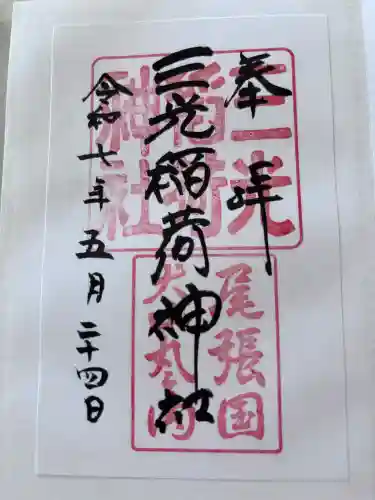 奉拝
三光稲荷神社
令和七年五月二十四日
三光
稲荷
神社
尾張国
犬山丸の内